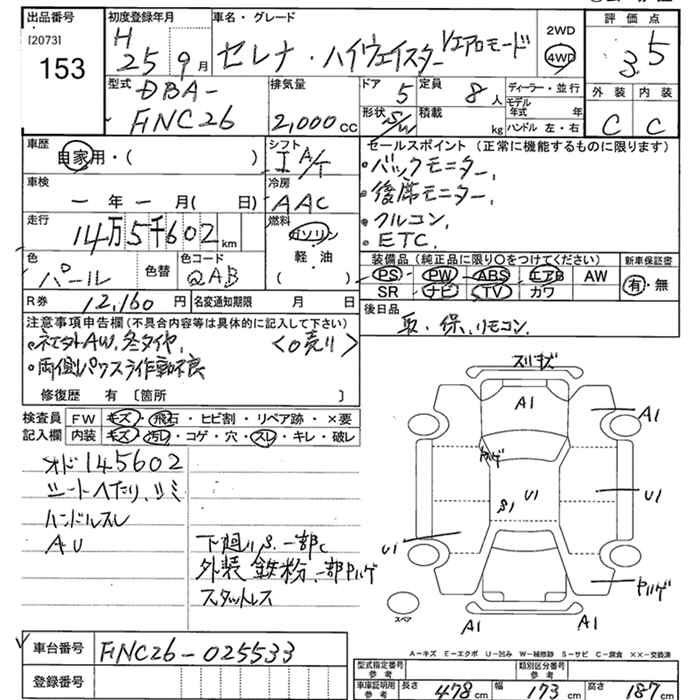 出品番号
[2073]
153
初度登録年月
H
25 9月
車名・グレード
セレナ・ハイウェイスターVエアロモード
2WD
4WD
評価点
3.5
外装 内装
C C
型式
DBA-
FNC26
排気量
2,000cc
ドア
5
定員
8人
形状
S/W
積載
kg
ディーラー・並行
モデル年式 年
ハンドル 左・右
車歴
自家用・( )
シフト
I A/T
セールスポイント(正常に機能するものに限ります)
・バックモニター,
・後席モニター,
・クルコン,
・ETC,
車検
ー年ー月( 日)
冷房
AAC
走行
14万5千602km
燃料
ガソリン
軽・油
( )
色
パール
色替
色コード
QAB
装備品(純正品に限り○をつけてください)
PS PW ABS エアB AW
SR ナビ TV カワ
新車保証書
有・無
R券
12,160円
名変通知期限 月 日
後日品
取・保,リモコン,
注意事項申告欄(不具合内容等は具体的に記入して下さい)
・社外AW,冬タイヤ, <0売り>
・両側パワスラ作動不良
修復歴 有 〔箇所 〕
検査員
記入欄
FW キズ・飛石・ヒビ割・リペア跡・×要
内装 キズ・汚レ・コゲ・穴・スレ・キレ・破レ
オド145602
シートヘたり,シミ
ハンドルスレ
AU
下廻りS,一部C
外装 鉄粉,一部ヤハゲ
スタットレス
スリキズ
A1
A1
ヤハゲ
U1
S1
U1
U1
ヤハゲ
A1
A1
スペア
A-キズ E-エクボ U-凹み W-補修跡 S-サビ C-腐食 ××-交換済
車台番号
FNC26-025533
登録番号
型式指定番号
参考
類別区分番号
参考
車庫証明用
参考
長さ 478cm 幅 173cm 高さ 187cm